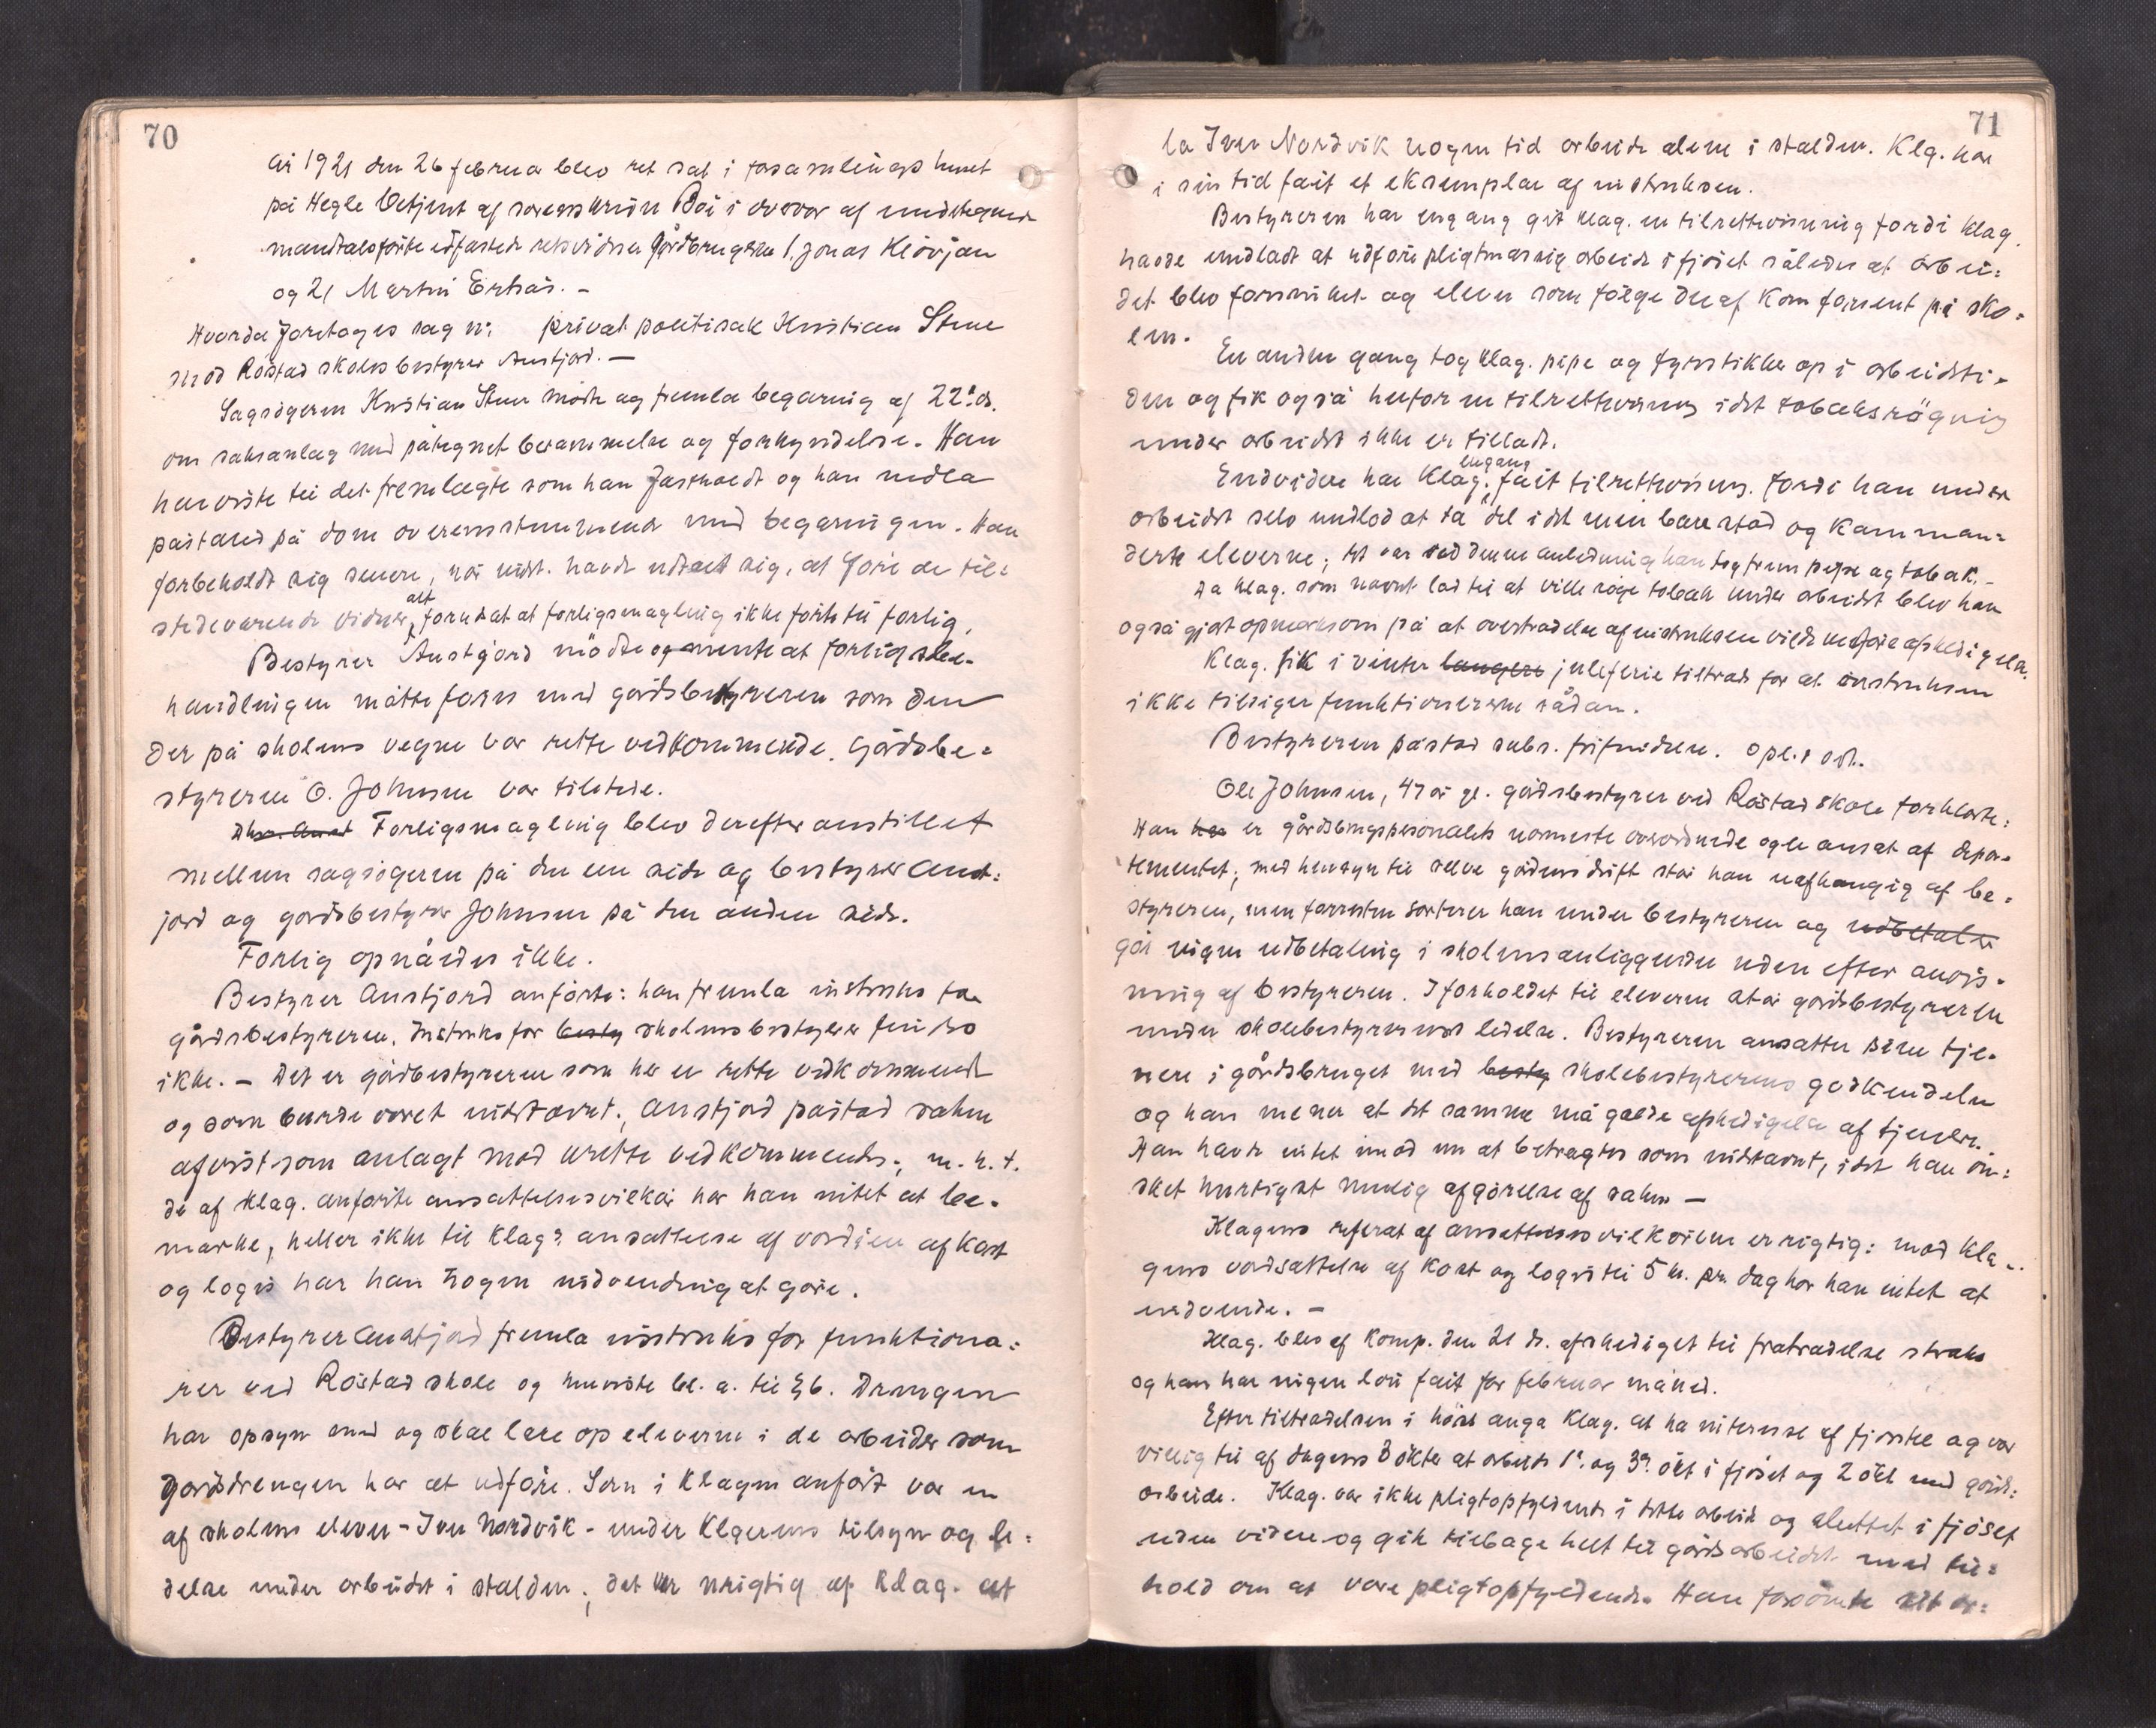 70
År 1921 den 26 februar blev ret sat i forsamlingshuset
på Hegle betjent af sorenskriver Boi i overvær af undertegnede
mandtalsførte edfæstede retsvidner gårdbrugerne 1. Jonas Kløvjan
og 2, Martin Ertsås. –
Hvorda foretoges sag nr: privat politisak Kristian Stene
mod Röstad skoles bestyrer Austjord. –
Sagsögeren Kristian Stene mödte og fremla begæring af 22' ds.
om saksanlæg med påtegnet berammelse og forkyndelse. Han
henviste til det fremlagte som han fastholdt og han nedla
påstand på dom overensstemmende med begæringen. Han
forbeholdt sig senere, når indst. havde udtalt sig, at före de til-
stedeværende vidner, alt forudsat at forligsmægling ikke förte til forlig.
Bestyrer Austjord mödte og mente at forligsbe-
handlingen måtte foregå med gårdsbestyreren som den
der på skolens vegne var rette vedkommende. Gårdsbe-
styreren O. Johnsen var tilstede.
Forligsmægling blev derefter anstillet
mellem sagsögeren på den ene side og bestyrer Aust-
jord og gårdsbestyrer Johnsen på den anden side.
Forlig opnåedes ikke.
Bestyrer Austjord anförte: han fremla instruks for
gårdsbestyreren. Instruks for besty skolens bestyrer findes
ikke. – Det er gårdbestyreren som her er rette vedkommende
og som burde været indstævnt. Austjord påstod saken
afvist som anlagt mod urette vedkommende; m. h. t.
de af klag. anförte ansættelsesvilkår har han intet at be-
mærke, heller ikke til klags ansættelse af værdien af kost
og logis har han nogen indvending at gøre.
Bestyrer Austjord fremla instruks for funktionæ-
rer ved Röstad skole og henviste bl. a. til § 6. Drengen
har opsyn med og skal lære op eleverne i de arbeider som
gårdsdrengen har at udføre. Som i klagen anført var en
af skolens elever – Iver Nordvik – under klagerens tilsyn og le-
delse under arbeidet i stalden; det er urigtig af klag. at
71
la Iver Nordvik nogen tid arbeide alene i stalden. Klg. har
i sin tid fåit et eksemplar af instruksen.
Bestyreren har engang git klag. en tilrettevisning fordi klag.
havde undladt at udföre pligtmæssig arbeide i fjöset således at arbei-
det blev forsinket og elever som fölge deraf kom forsent på sko-
len.
En anden gang tog klag. pipe og fyrstikker op i arbeidsti-
den og fik også herfor en tilrettevisning idet tobaksrögning
under arbeidet ikke er tilladt.
Endvidere har klag. engang fåit tilrettevisning fordi han under
arbeidet selv undlod at ta del i det men bare stod og komman-
derte eleverne; det var ved denne anledning han tog frem pipe og tobak. –
Da klag. som nævnt lod til at ville röge tobak under arbeidet blev han
også gjort opmerksom på at overtrædelse af instruksen vilde medføre afskedigelse.
Klag. fik i vinter længere juleferie tiltrods for at instruksen
ikke tilsiger funktionærerne sådan.
Bestyreren påstod subs. frifindelse. Opl. & vedt.
Ole Johnsen, 47 år gl. gårdsbestyrer ved Röstad skole forklarte:
Han har er gårdsbrugspersonalets nærmeste overordnede og er ansat af depar-
tementet; med hensyn til selve gårdens drift står han uafhængig af be-
styreren, men forresten sorterer han under bestyreren og udbetaler
gör ingen udbetaling i skolens anliggender uden efter anvis-
ning af bestyreren. I forholdet til eleverne står gårdsbestyreren
under skolebestyrerens ledelse. Bestyreren ansætter selv tje-
nere i gårdsbruget med besty skolebestyrerens godkendelse
og han mener at det samme må gælde afskedigelse af tjenere.
Han havde intet imod nu at betragtes som indstævnt, idet han ön-
sket hurtigst mulig afgörelse af saken –
Klagens referat af ansættelsesvilkårene er rigtig: mod kla-
gens verdsættelse af kost og logis til 5 kr. pr. dag har han intet at
indvende. –
Klag. blev af komp. den 21 ds. afskediget til fratrædelse straks
og han har ingen lön fåit for februar måned.
Efter tiltrædelsen i höst anga klag. at ha interesse af fjösstel og var
villig til af dagens 3 ökter at arbeide 1ste og 3die ökt i fjöset og 2 ökt med gårds-
arbeide. Klag. var ikke pligtopfyldende i dette arbeide og sluttet i fjöset
uden videre og gik tilbage helt til gårdsarbeidet med til-
hold om at være pligtopfyldende. Han forsömte sit ar-